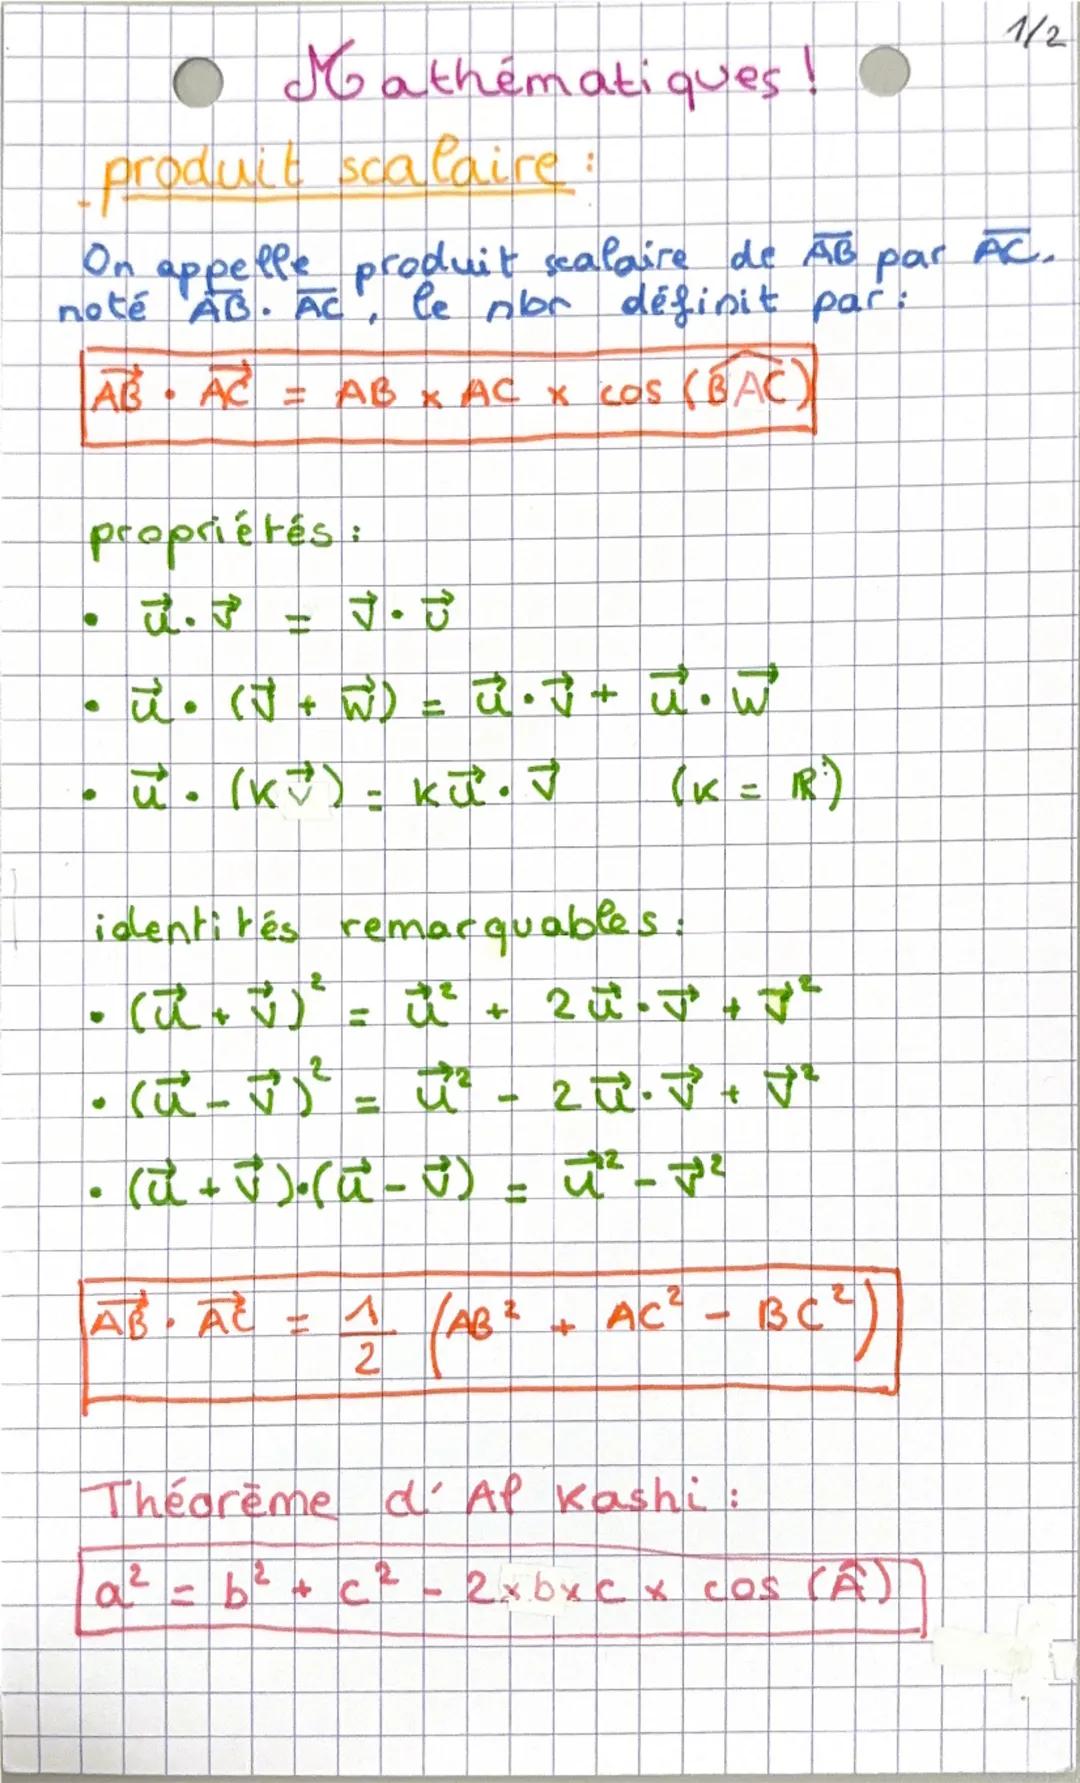 1/2
Mathématiques !
produit scalaire :
On appelle produit scalaire de A͞B par A͞C.
noté A͞B . A͞C, le nbr définit par :
A⃗B⃗ . A⃗C⃗ = AB x AC x cos (B̂AC)
propriétés :
• u⃗.v⃗ = v⃗.u⃗
• u⃗. (v⃗ + w⃗) = u⃗.v⃗ + u⃗.w⃗
• u⃗. (Kv⃗) = Ku⃗.v⃗ (K = ℝ)
identités remarquables :
• (u⃗ + v⃗)² = u⃗² + 2u⃗.v⃗ + v⃗²
• (u⃗ - v⃗)² = u⃗² - 2u⃗.v⃗ + v⃗²
• (u⃗ + v⃗).(u⃗ - v⃗) = u⃗² - v⃗²
A⃗B⃗ . A⃗C⃗ = 1/2 (AB² + AC² - BC²)
Théorème d'Al Kashi :
a² = b² + c² - 2xbxc x cos (Â)